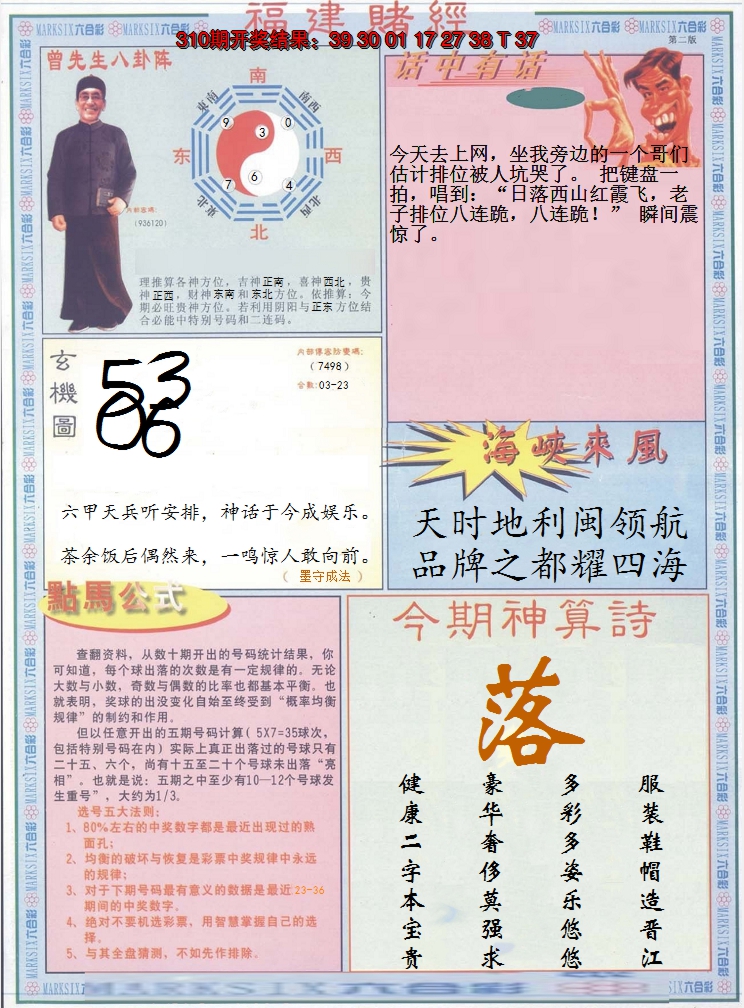 福建賭經
310期开奖结果：39 30 01 17 27 38 T 37
MARKSIX六合彩
第二版
曾先生八卦阵
南
東南
西南
9
3
0
东
西
7
6
4
東北
西北
北
内部密碼:
(936120)
理推算各神方位，吉神正南，喜神西北，贵
神正西，财神东南和东北方位。依推算：今
期必旺贵神方位。若利用阴阳与正东方位结
合必能中特别号码和二连码。
话中有话
今天去上网，坐我旁边的一个哥们
估计排位被人坑哭了。 把键盘一
拍，唱到：“日落西山红霞飞，老
子排位八连跪，八连跪！” 瞬间震
惊了。
玄機圖
53
06
内部傳密防雙碼:
(7498)
合數:03-23
六甲天兵听安排，神话于今成娱乐。
茶余饭后偶然来，一鸣惊人敢向前。
（ 墨守成法 ）
海峽來風
天时地利闽领航
品牌之都耀四海
點馬公式
查翻资料，从数十期开出的号码统计结果，你
可知道，每个球出落的次数是有一定规律的。无论
大数与小数，奇数与偶数的比率也都基本平衡。也
就表明，奖球的出没变化自始至终受到“概率均衡
规律”的制约和作用。
但以任意开出的五期号码计算( 5X7=35球次，
包括特别号码在内) 实际上真正出落过的号球只有
二十五、六个，尚有十五至二十个号球未出落“亮
相”。也就是说：五期之中至少有10—12个号球发
生重号”，大约为1/3。
选号五大法则：
1、80%左右的中奖数字都是最近出现过的熟
面孔；
2、均衡的破坏与恢复是彩票中奖规律中永远
的规律；
3、对于下期号码最有意义的数据是最近23-36
期间的中奖数字。
4、绝对不要机选彩票，用智慧掌握自己的选
择。
5、与其全盘猜测，不如先作排除。
今期神算詩
落
服装鞋帽造晋江
多彩多姿乐悠悠
豪华奢侈莫强求
健康二字本宝贵